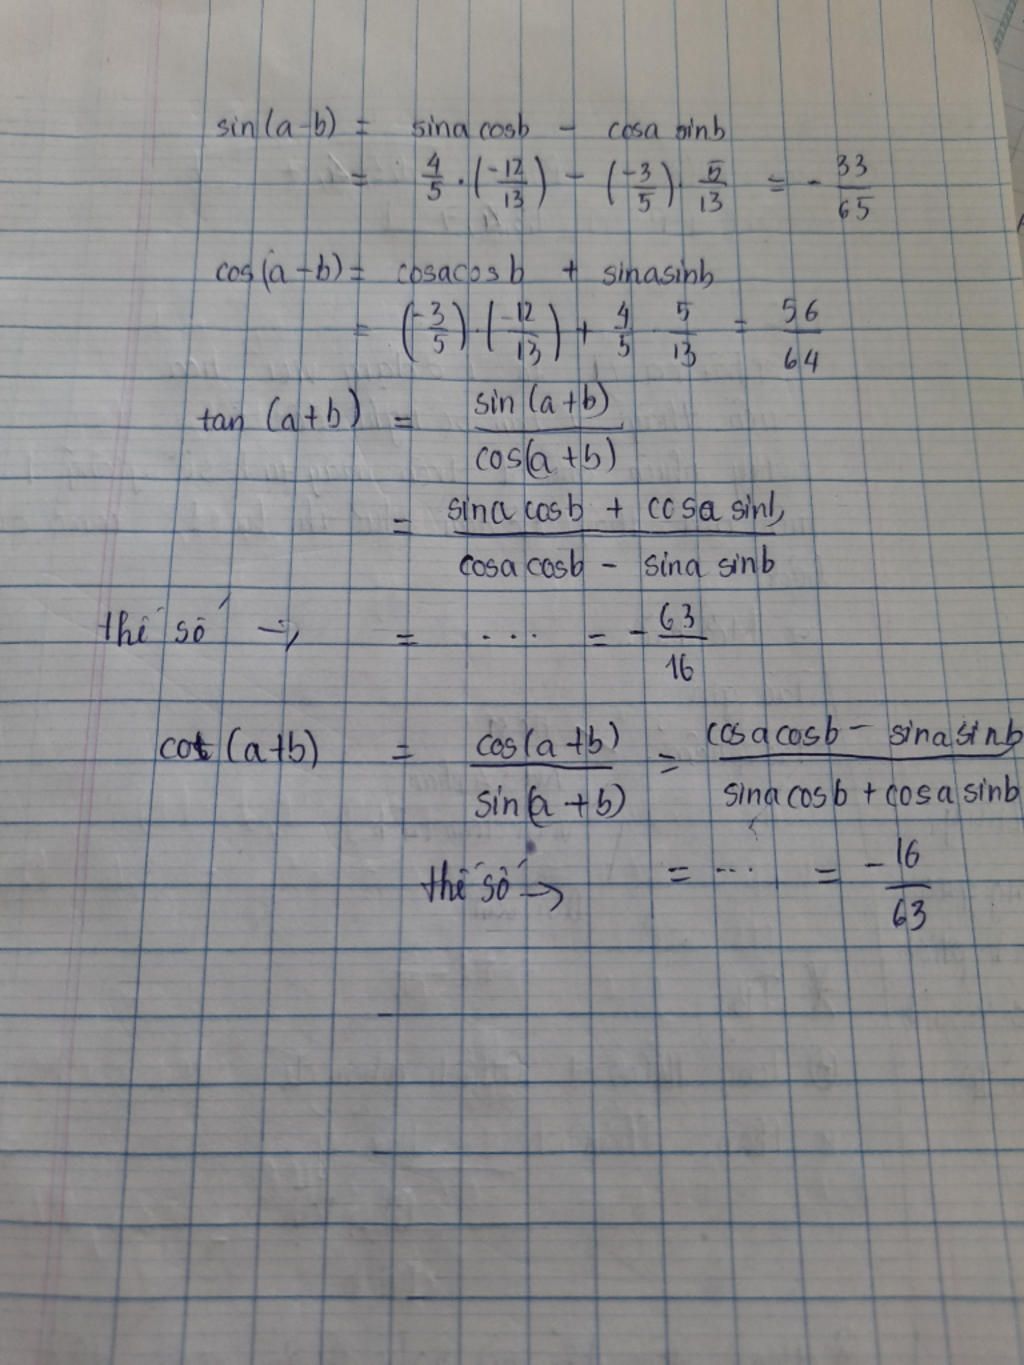 sin(a-b) = sina cosb - cosa sinb
= 4/5 . (-12/13) - (-3/5) . 5/13 = - 33/65
cos(a-b) = cosacosb + sinasinb
= (-3/5) . (-12/13) + 4/5 5/13 = 56/64
tan (a+b) = sin(a+b)/cos(a+b)
= sina cosb + cosa sinb/cosa cosb - sina sinb
thế số → = ... = - 63/16
cot (a+b) = cos(a+b)/sin(a+b) = cosacosb - sinasinb/sinacosb + cosasinb
thế số → = ... = - 16/63